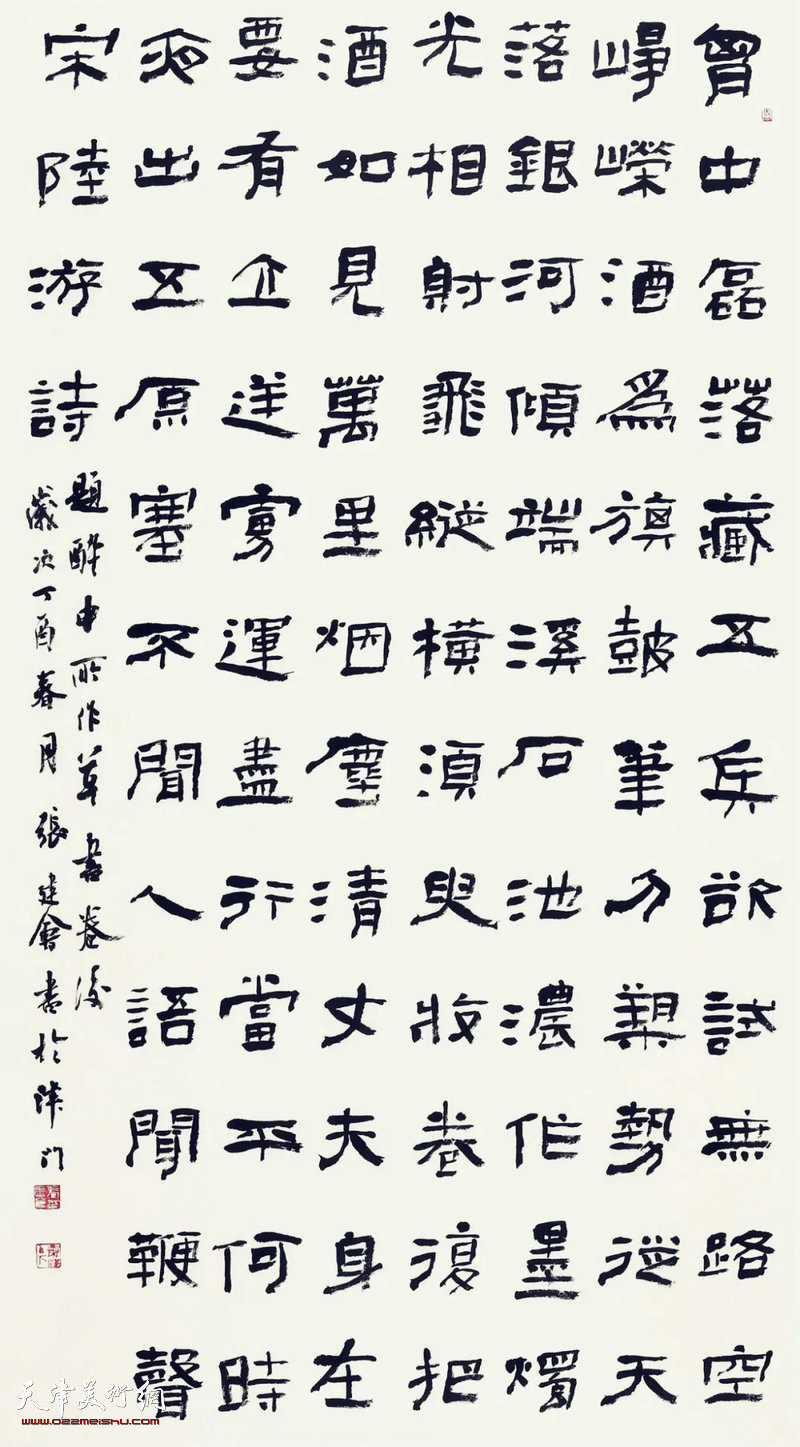 胷中磊落藏五兵欲試無路空
崢嶸酒爲旗鼓筆刀槊勢從天
落銀河傾端溪石池濃作墨燭
光相射飛縱橫須臾收卷復把
酒如見萬里烟塵清丈夫身在
要有立逆虜運盡行當平何時
夜出五原塞不聞人語聞鞭聲
宋陸游詩
題醉中所作草書卷後
歲次丁酉春月張建會書於津門
天津美術網
www.022meishu.com